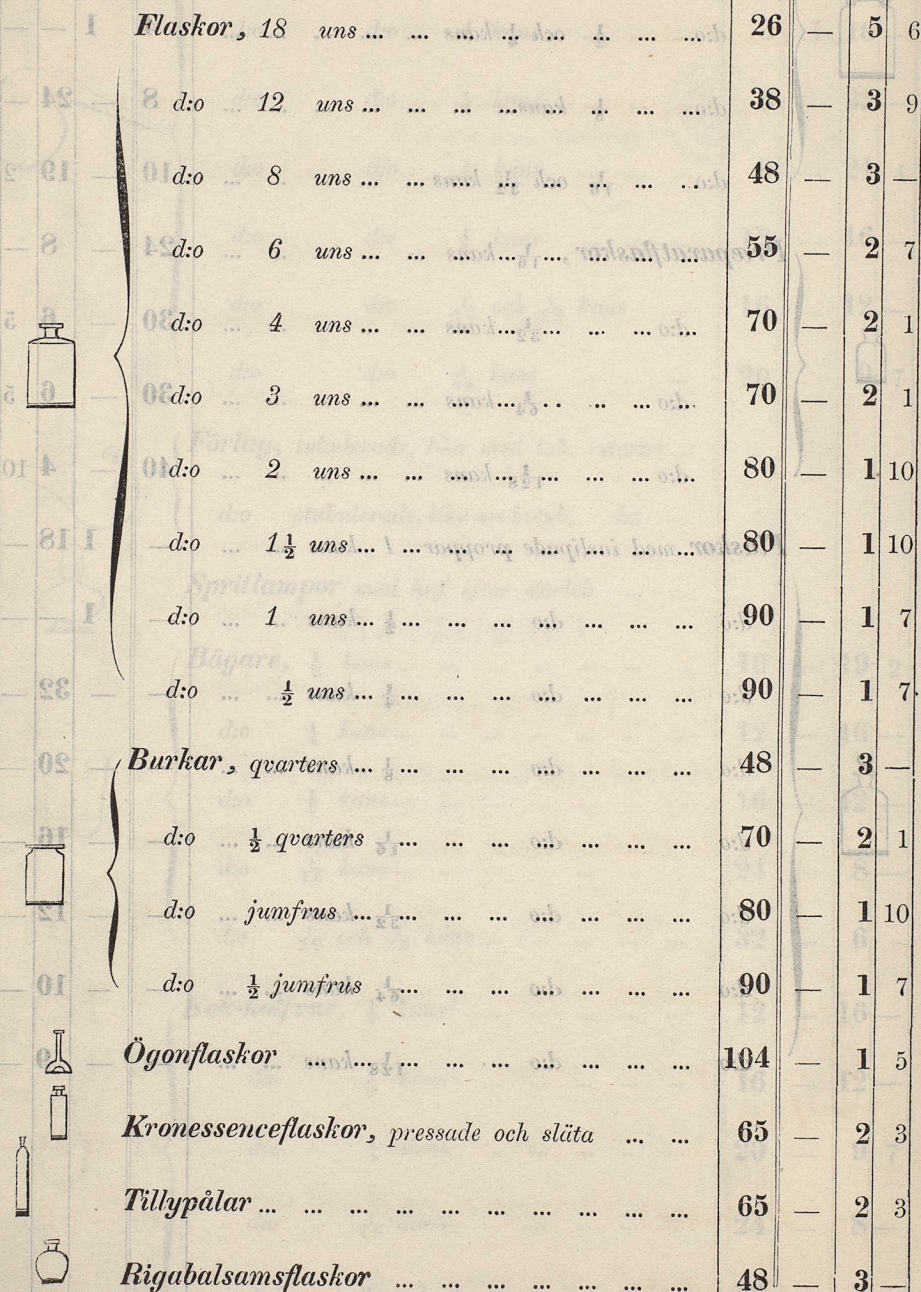 Flaskor, 18 uns... ... ... ... ... ... ... ... 26 — 5 6
d:o 12 uns... ... ... ... ... ... ... ... 38 — 3 9
d:o 8 uns... ... ... ... ... ... ... ... 48 — 3 —
d:o 6 uns... ... ... ... ... ... ... ... 55 — 2 7
d:o 4 uns... ... ... ... ... ... ... ... 70 — 2 1
d:o 3 uns... ... ... ... ... ... ... ... 70 — 2 1
d:o 2 uns... ... ... ... ... ... ... ... 80 — 1 10
d:o 1½ uns... ... ... ... ... ... ... ... 80 — 1 10
d:o 1 uns... ... ... ... ... ... ... ... 90 — 1 7
d:o ½ uns... ... ... ... ... ... ... ... 90 — 1 7
Burkar, qvarters ... ... ... ... ... ... ... ... 48 — 3 —
d:o ½ qvarters ... ... ... ... ... ... ... 70 — 2 1
d:o jumfrus ... ... ... ... ... ... ... ... 80 — 1 10
d:o ½ jumfrus ... ... ... ... ... ... ... 90 — 1 7
Ögonflaskor ... ... ... ... ... ... ... ... ... 104 — 1 5
Kronessenceflaskor, pressade och släta ... ... 65 — 2 3
Tillypålar ... ... ... ... ... ... ... ... ... ... 65 — 2 3
Rigabalsamsflaskor ... ... ... ... ... ... ... 48 — 3 —